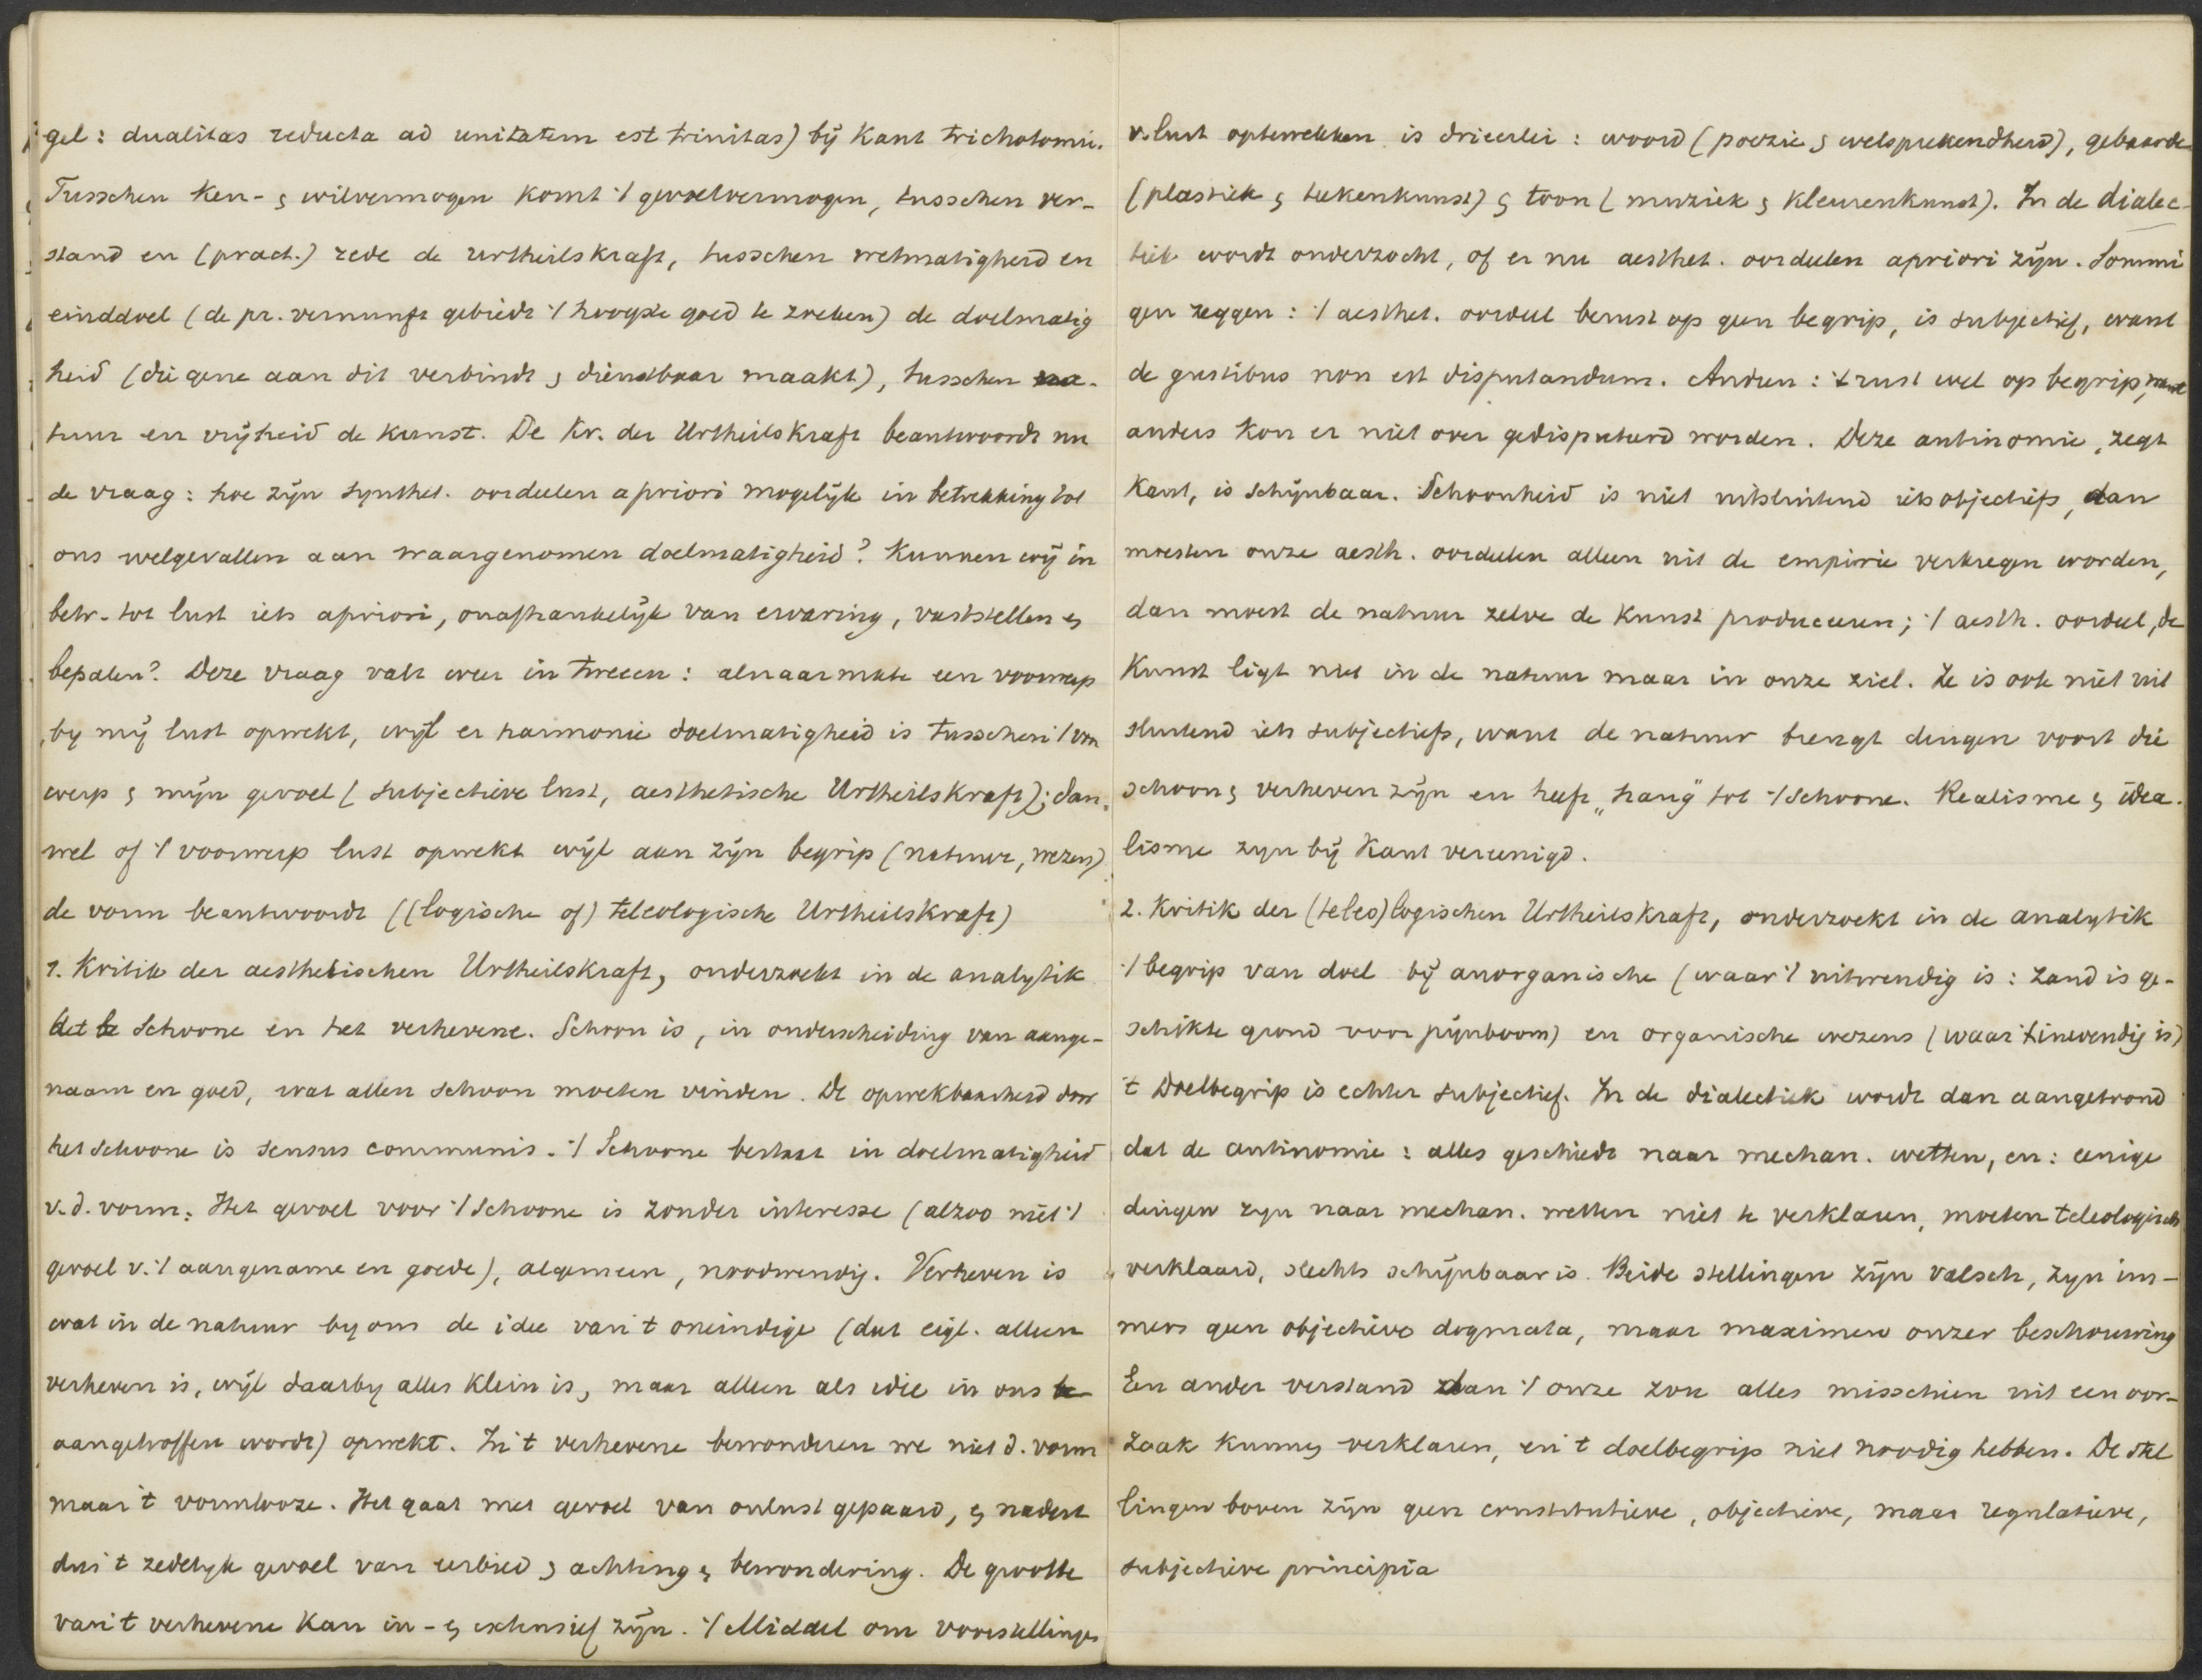 gel: dualitas reducta ad unitatem est trinitas) bij Kant trichotomie.
Tusschen Ken- & wilvermogen komt 't gevoelvermogen, tusschen ver-
stand en (pract.) rede de Urtheilskraft, tusschen wetmatigheid en
einddoel (de pr. vernunft gebiedt 't hoogste goed te zoeken) de doelmatig
heid (die gene aan dit verbindt & dienstbaar maakt), tusschen na-
tuur en vrijheid de kunst. De Kr. der Urtheilskraft beantwoordt nu
de vraag: hoe zijn synthet. oordeelen apriori mogelijk in betrekking tot
ons welgevallen aan waargenomen doelmatigheid? Kunnen wij in
betr. tot lust iets apriori, onafhankelijk van ervaring, vaststellen &
bepalen? Deze vraag valt weer in tweeen: alnaarmate een voorwerp
by mij lust opwekt, wijl er harmonie doelmatigheid is tusschen 't voor
werp & mijn gevoel (subjectieve lust, aesthetische Urtheilskraft); dan
wel of 't voorwerp lust opwekt wijl aan zijn begrip (natuur, wezen)
de vorm beantwoordt ((logische of) teleologische Urtheilskraft)
1. Kritik der aesthetischen Urtheilskraft, onderzoekt in de analytik
het Schoone en het verhevene. Schoon is, in onderscheiding van aange-
naam en goed, wat allen schoon moeten vinden. De opwekbaarheid door
het schoone is sensus communis. 't Schoone bestaat in doelmatigheid
v.d. vorm. Het gevoel voor 't Schoone is zonder interesse (alzoo niet 't
gevoel v. 't aangename en goede), algemeen, noodwendig. Verheven is
wat in de natuur by ons de idee van 't oneindige (dat eigl. alleen
verheven is, wijl daarby alles klein is, maar alleen als idee in ons
aangetroffen wordt) opwekt. In 't verhevene bewonderen we niet d. vorm
maar 't vormlooze. Het gaat met gevoel van onlust gepaard, & nadert
dus 't zedelyk gevoel van eerbied & achting & bewondering. De grootte
van 't verhevene kan in- & extensief zijn. 't Middel om voorstellingen
v. lust optewekken is drieerlei: woord (poezie & welsprekendheid), gebaarde
(plastiek & tekenkunst) & toon (muziek & kleurenkunst). In de dialec-
tiek wordt onderzocht, of er nu aesthet. oordeelen apriori zijn. Sommi
gen zeggen: 't aesthet. oordeel berust op geen begrip, is subjectief, want
de gustibus non est disputandum. Andren: 't rust wel op begrip, want
anders kon er niet over gedisputeerd worden. Deze antinomie, zegt
Kant, is schijnbaar. Schoonheid is niet uitsluitend iets objectiefs, dan
moesten onze aesth. oordeelen alleen uit de empirie verkregen worden,
dan moest de natuur zelve de kunst produceeren; 't aesth. oordeel, de
Kunst ligt niet in de natuur maar in onze ziel. Ze is ook niet uit
sluitend iets subjectiefs, want de natuur brengt dingen voort die
schoon & verheven zijn en heeft „hang" tot 't Schoone. Realisme & idea-
lisme zyn bij Kant vereenigd.
2. Kritik der (teleo)logischen Urtheilskraft, onderzoekt in de analytik
't begrip van doel bij anorganische (waar 't uitwendig is: zand is ge-
schikte grond voor pijnboom) en organische wezens (waar 't inwendig is)
't Doelbegrip is echter subjectief. In de dialectiek wordt dan aangetoond
dat de antinomie: alles geschiedt naar mechan. wetten, en: eenige
dingen zyn naar mechan. wetten niet te verklaren, moeten teleologisch
verklaard, slechts schijnbaar is. Beide stellingen zijn valsch, zyn im-
mers geen objectieve dogmata, maar maximen onzer beschouwing
Een ander verstand dan 't onze zou alles misschien uit een oor-
zaak kunnen verklaren, en 't doelbegrip niet noodig hebben. De stel
lingen boven zijn geen constitutieve, objectieve, maar regulatieve,
subjectieve principia